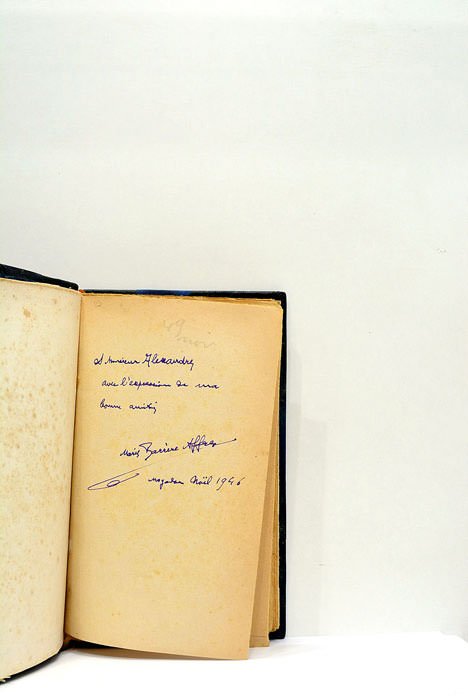 A Monsieur Alexandre
avec l'expression de ma
bonne amitié
Marie Barrère Affre
Mogador Noël 1946